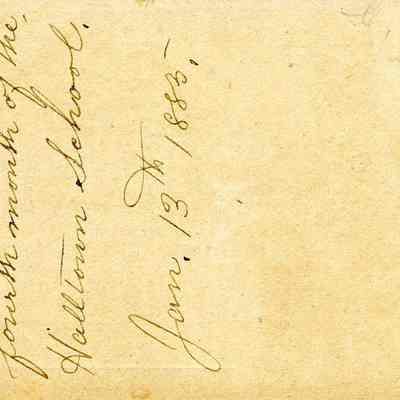 fourth month of the
Halltown School.
Jan. 13th 1885.